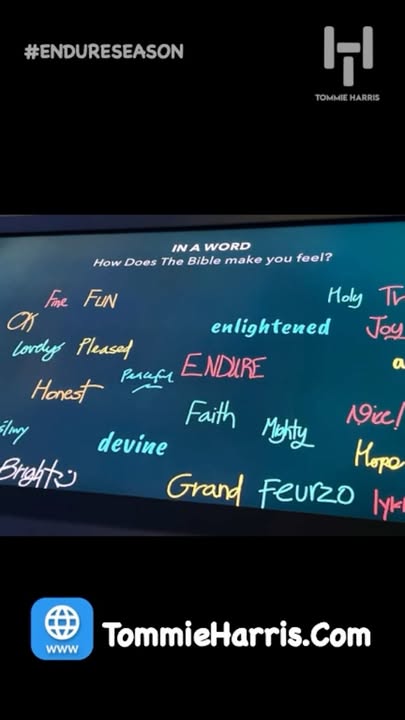 #ENDURESEASON
TOMMIE HARRIS
IN A WORD
How Does The Bible make you feel?
Fine FUN
Holy
OK
enlightened
Joy
Lovely
Pleased
Peaceful
ENDURE
Honest
Faith
Mighty
Nice!
devine
Hope
Bright
Grand
Feurzo
WWW
TommieHarris.Com